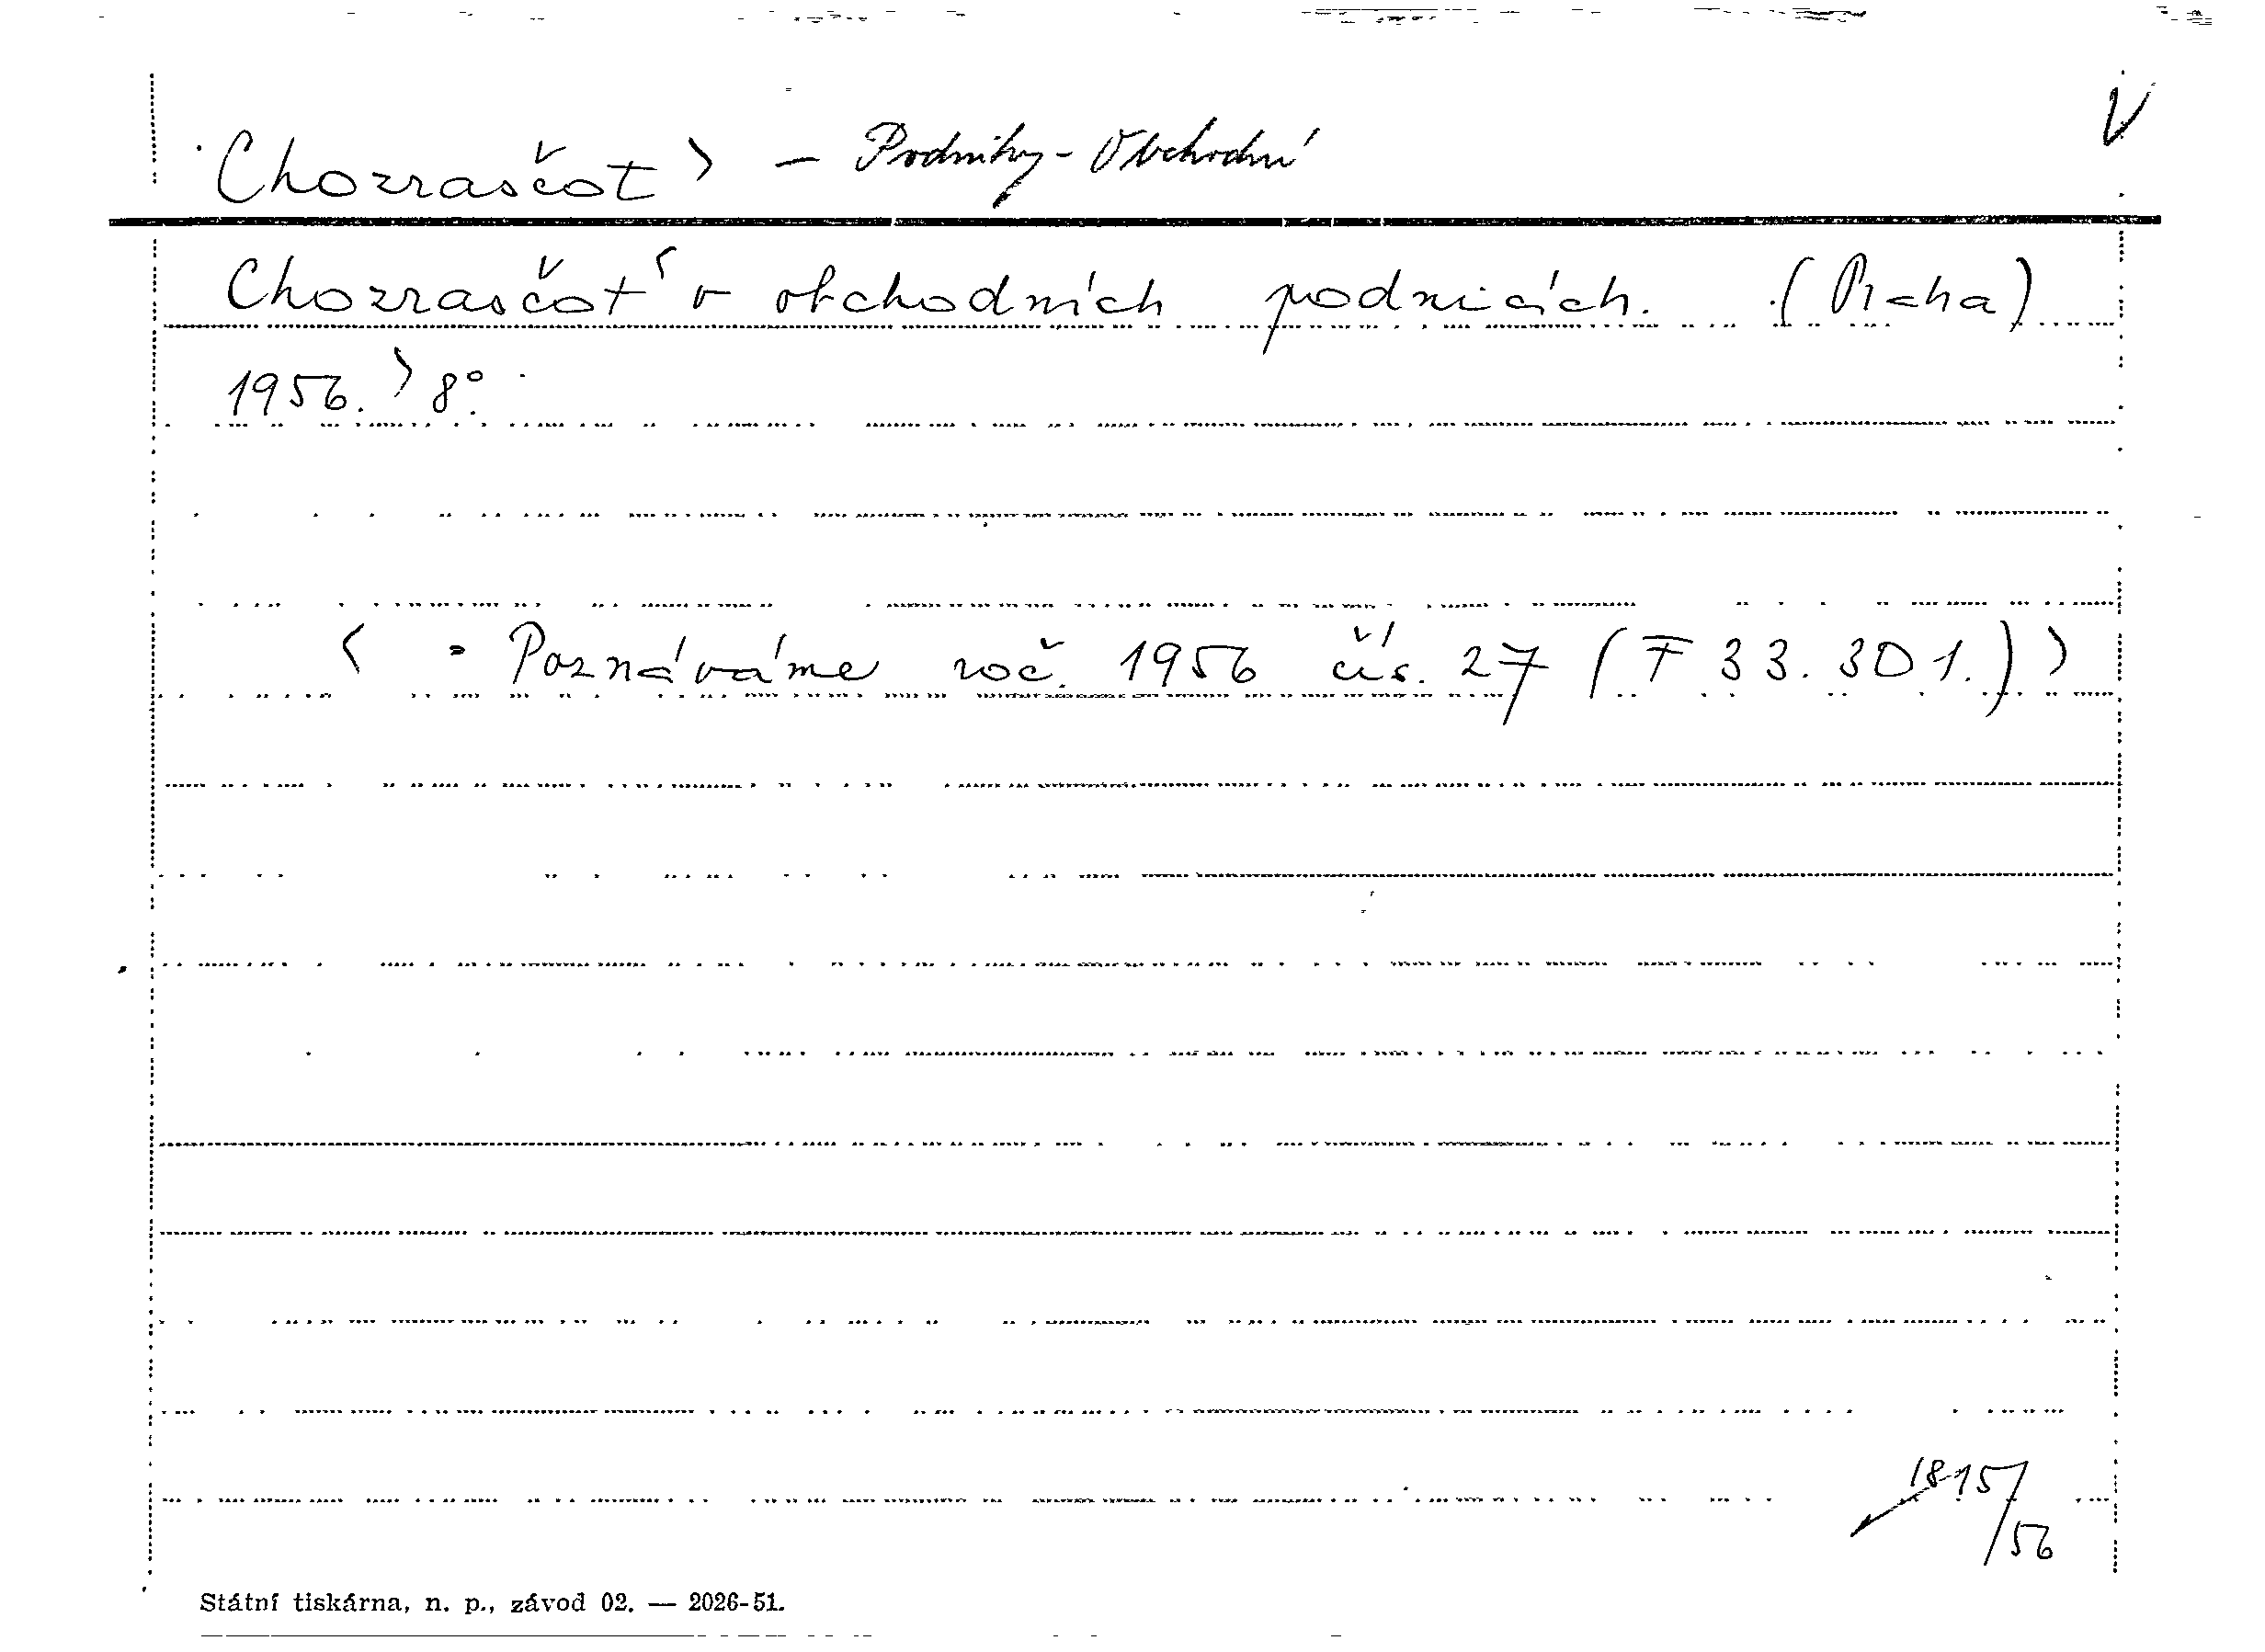 Chozrasčot > — Podniky - Obchodní
V
Chozrasčot < v obchodních podnicích. (Praha)
1956. > 8°.
< = Poznáváme roč. 1956 čís. 27 (F 33.301.) >
1815/56
Státní tiskárna, n. p., závod 02. — 2026-51.